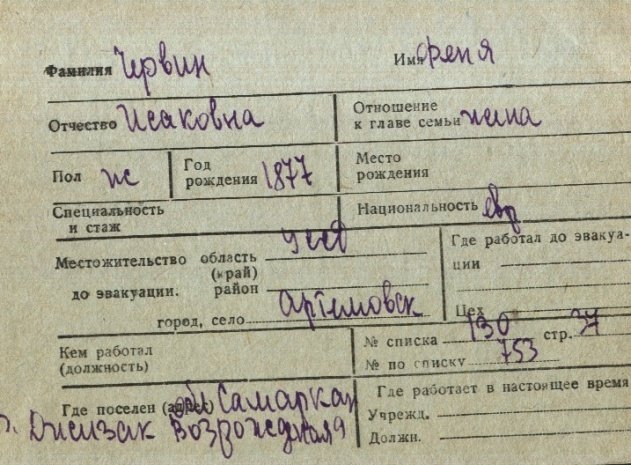 Фамилия Червин Имя Феня
Отчество Исаковна Отношение к главе семьи жена
Пол ж Год рождения 1877 Место рождения
Специальность и стаж Национальность евр
Местожительство область
(край)
до эвакуации. район
город, село Артемовск
Где работал до эвакуа-
ции
Цех
Кем работал
(должность)
№ списка 130 стр. 37
№ по списку 753
Где поселен (адрес) обл Самаркан
г. Джизак Возрожденная
Где работает в настоящее время
Учрежд.
Должн.